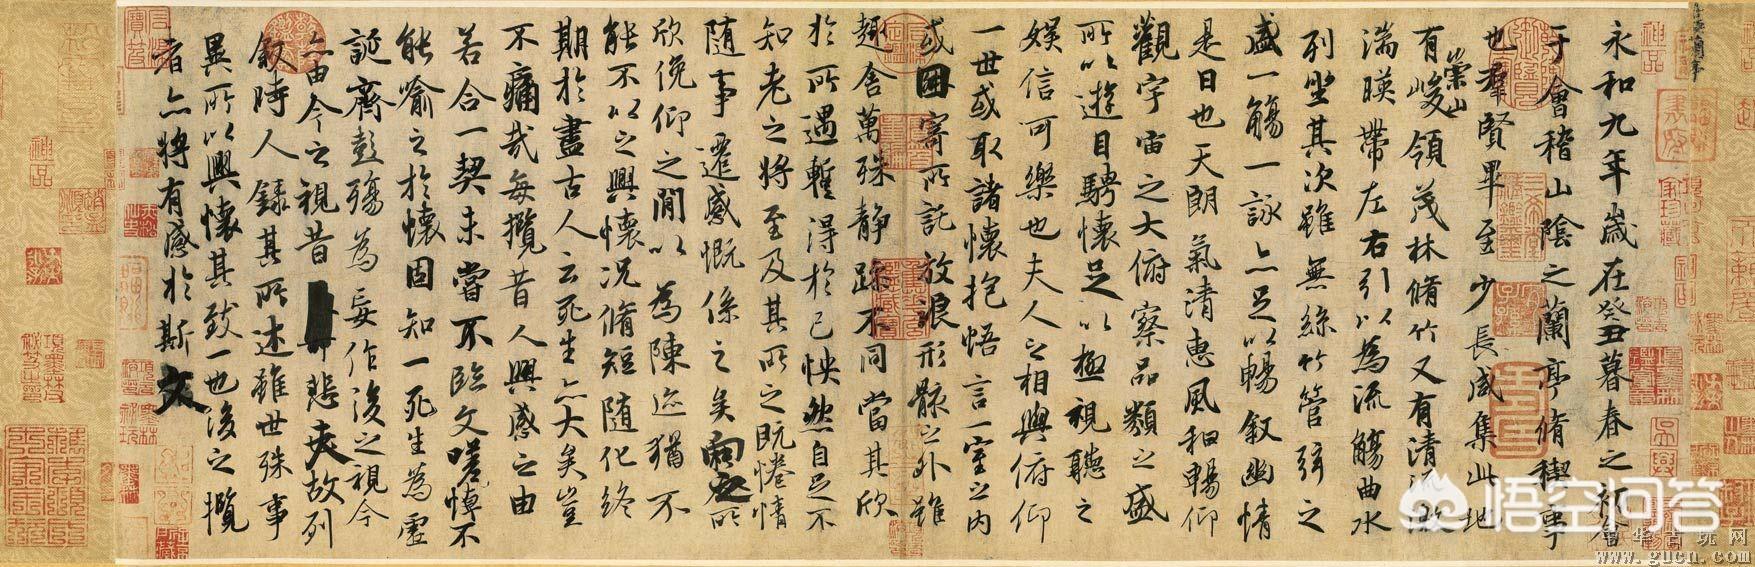 永和九年歲在癸丑暮春之初會
于會稽山陰之蘭亭脩稧事
也羣賢畢至少長咸集此地
有崇山峻領茂林脩竹又有清流激
湍暎帶左右引以為流觴曲水
列坐其次雖無絲竹管弦之
盛一觴一詠亦足以暢敘幽情
是日也天朗氣清惠風和暢仰
觀宇宙之大俯察品類之盛
所以遊目騁懷足以極視聽之
娛信可樂也夫人之相與俯仰
一世或取諸懷抱悟言一室之內
或因寄所託放浪形骸之外雖
趣舍萬殊靜躁不同當其欣
於所遇蹔得於己怏然自足不
知老之將至及其所之既惓情
隨事遷感慨係之矣向之所
欣俛仰之間以為陳迹猶不
能不以之興懷況脩短隨化終
期於盡古人云死生亦大矣豈
不痛哉每攬昔人興感之由
若合一契未嘗不臨文嗟悼不
能喻之於懷固知一死生為虛
誕齊彭殤為妄作後之視今
亦由今之視昔悲夫故列
敘時人錄其所述雖世殊事
異所以興懷其致一也後之攬
者亦將有感於斯文
悟空问答
华古玩网
www.gucn.com